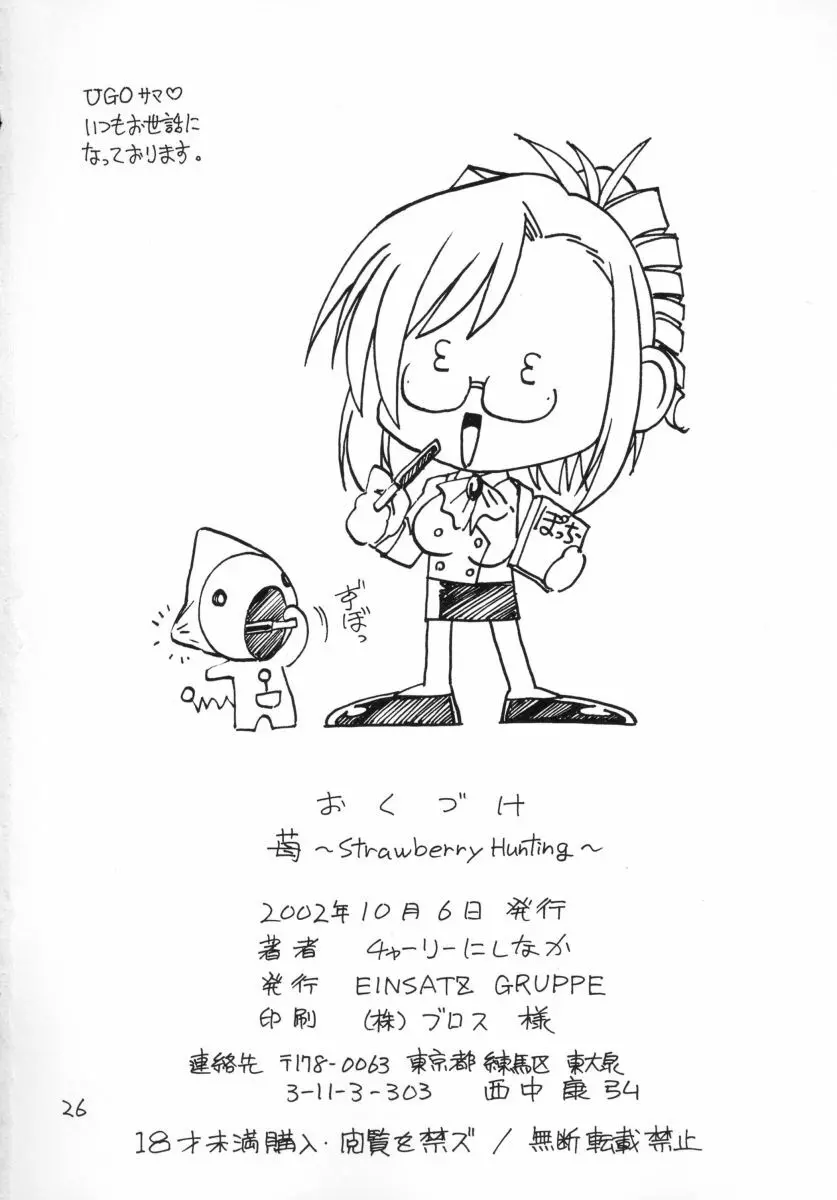 UGOサマ♡
いつもお世話に
なっております。
ぽっちー
ずぼっ
おくづけ
苺 ～Strawberry Hunting～
2002年10月6日 発行
著者 チャーリーにしなか
発行 EINSATZ GRUPPE
印刷 (株)ブロス 様
連絡先 〒178-0063 東京都 練馬区 東大泉
3-11-3-303 西中康弘
26
18才未満購入・閲覧を禁ズ / 無断転載禁止